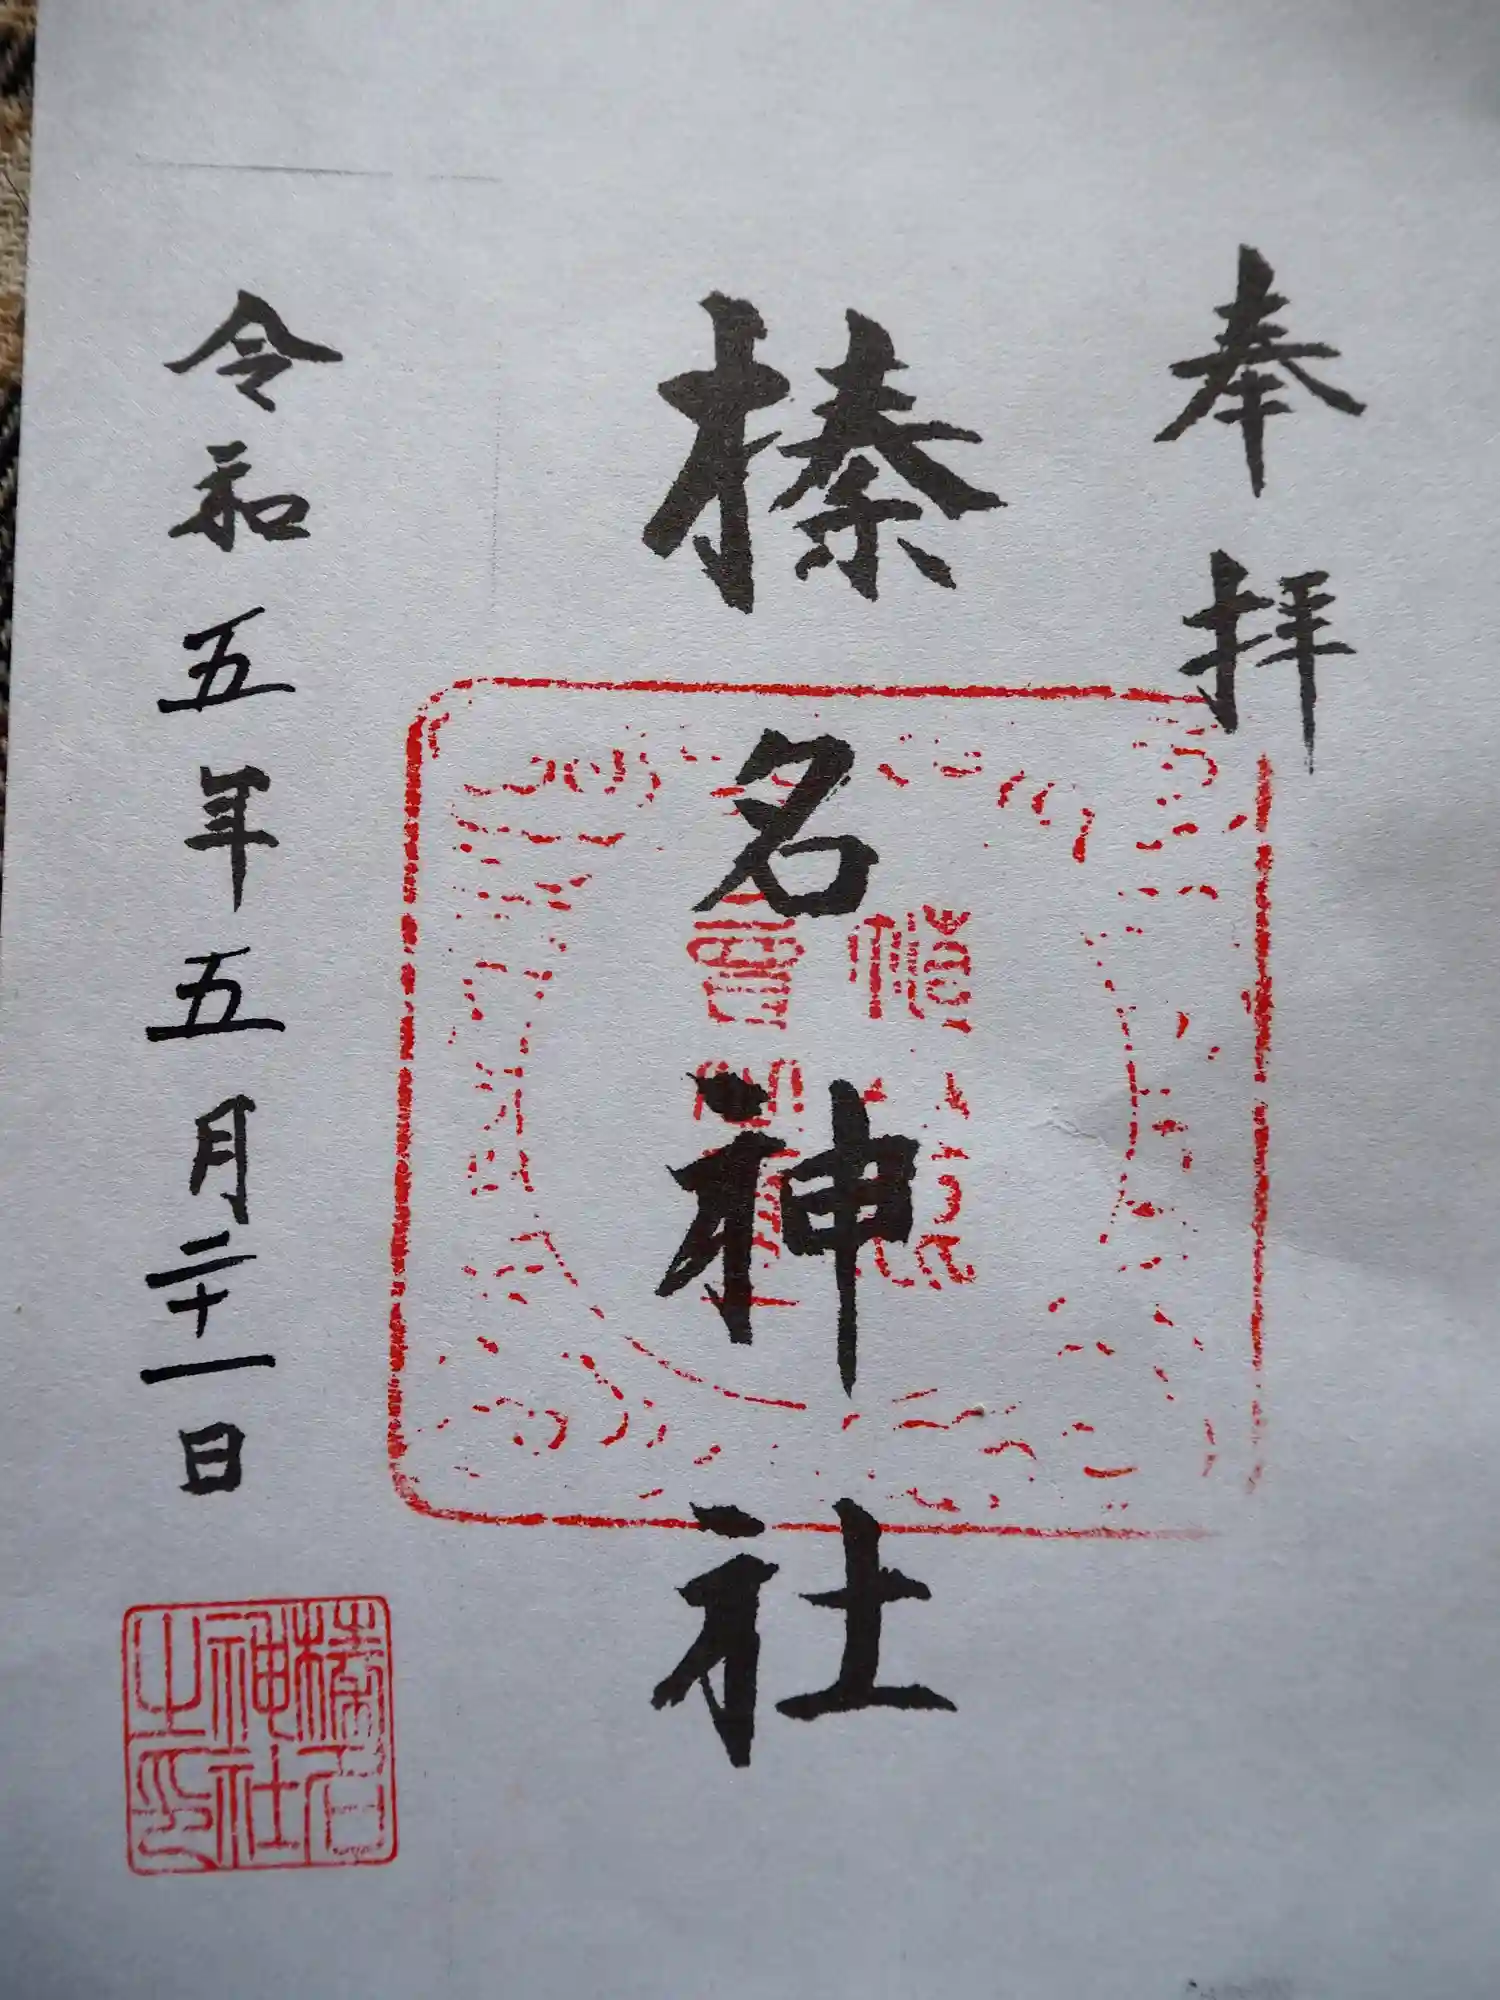 奉拝
榛名神社
令和五年五月二十一日
榛名
神社
之印